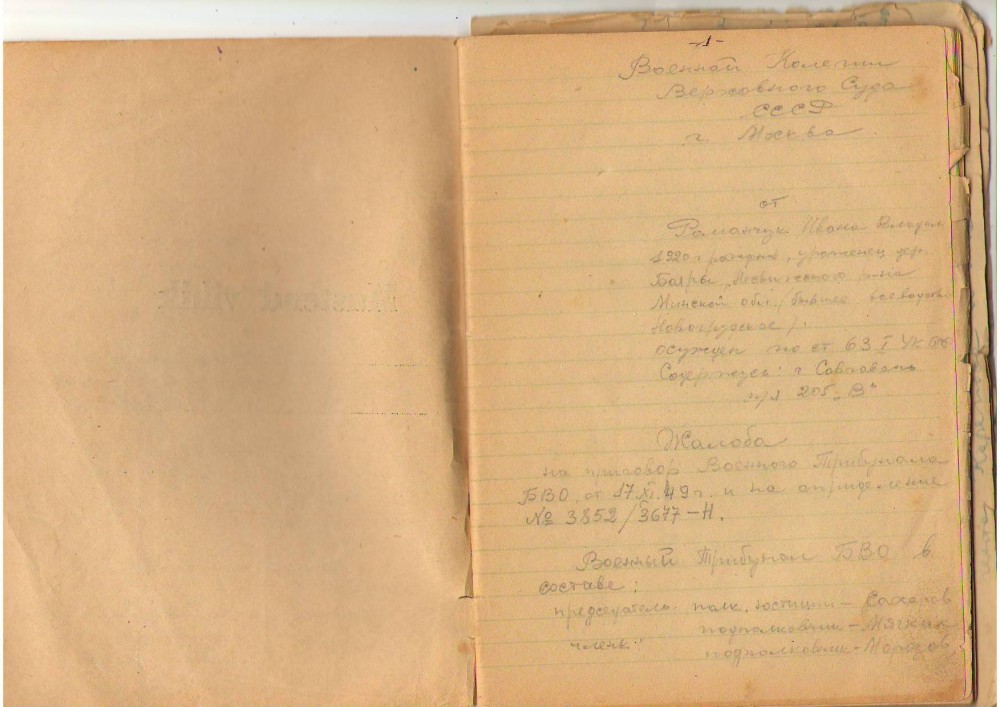 -1-
Военной Колегии
Верховного Суда
СССР
г. Москва
от
Романчук Ивана
1920 г рождения, уроженец дер.
Бояры, Несвижского р-на
Минской обл. /бывшее воеводство
Новогрудское/.
осужден по ст 63 I УК БССР
Содержусь: г Совгавань
п/я 205 „В"
Жалоба
на приговор Военного Трибунала
БВО, от 17.XI.49 г. и на определение
№ 3852/3677-Н.
Военный Трибунал БВО в
составе:
председатель полк. юстиции – Сахаров
члены: подполковник – Мягких
подполковник – Морозов